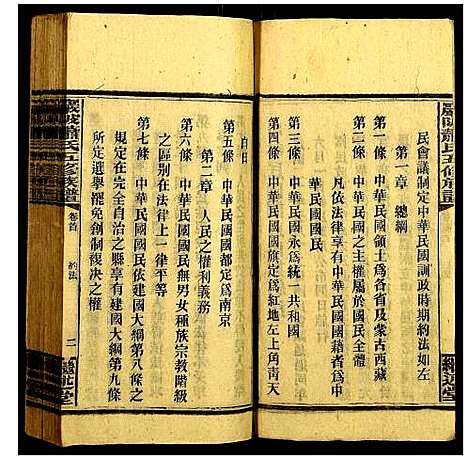 民會議制定中華民國訓政時期約法如左
第一章 總綱
第一條 中華民國領土爲各省及蒙古西藏
第二條 中華民國之主權屬於國民全體
凡依法律享有中華民國國籍者爲中
華民國國民
第三條 中華民國永爲統一共和國
第四條 中華民國國旗定爲紅地左上角青天
白日
第五條 中華民國國都定爲南京
第二章 人民之權利義務
第六條 中華民國國民無男女種族宗教階級
之區別在法律上一律平等
第七條 中華民國國民依建國大綱第八條之
規定在完全自治之縣享有建國大綱第九條
所定選舉罷免創制複决之權
蕭氏五修族譜
卷首
約法
二
蕭氏五修族譜
繼述堂